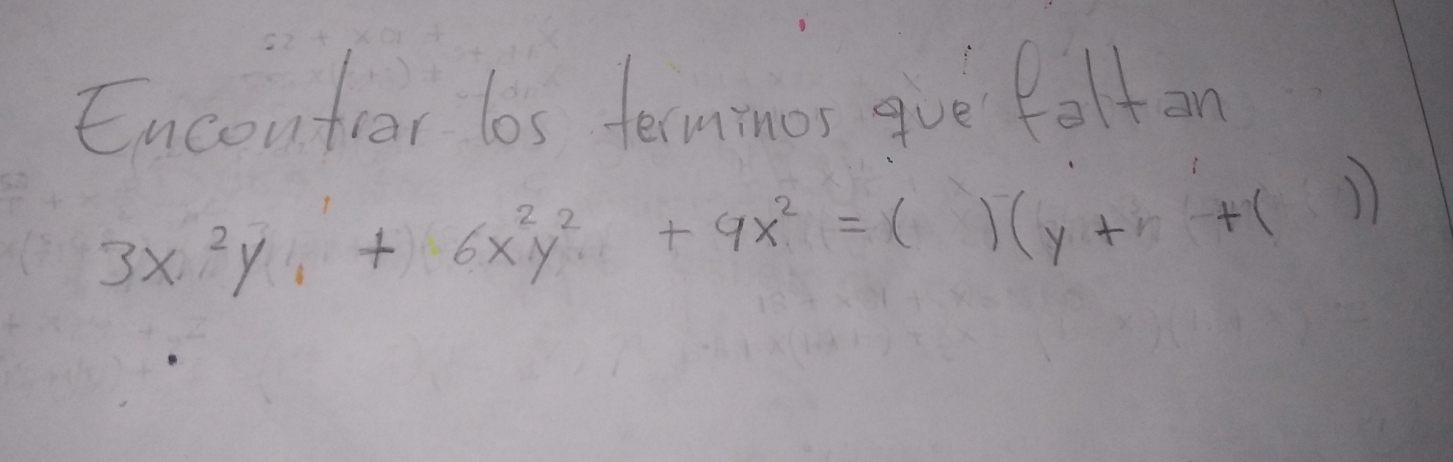 Encontrar los terminos que faltan
3x²y + 6x²y² + 9x² = ( )(y + + ( ))